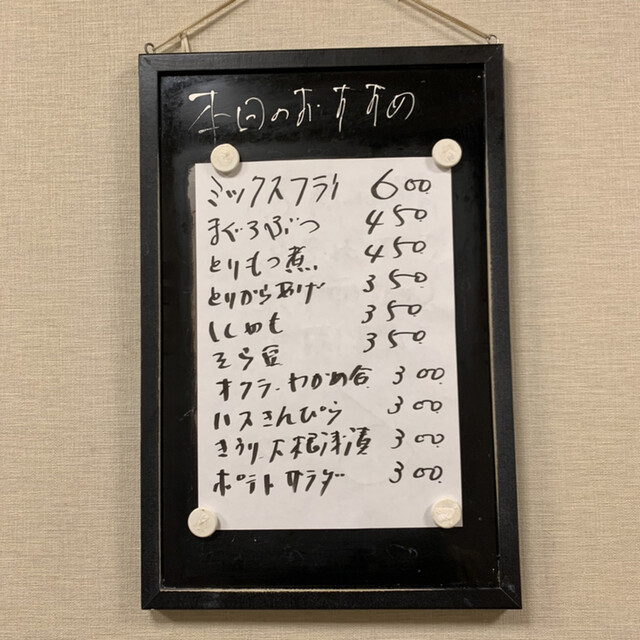 本日のおすすめ
ミックスフライ 600.
まぐろぶつ 450.
とりもつ煮 450.
とりからあげ 350.
ししゃも 350.
そら豆 350.
オクラ・わかめ合 300.
ハスきんぴら 300.
きうり、大根浅漬 300.
ポテトサラダー 300.